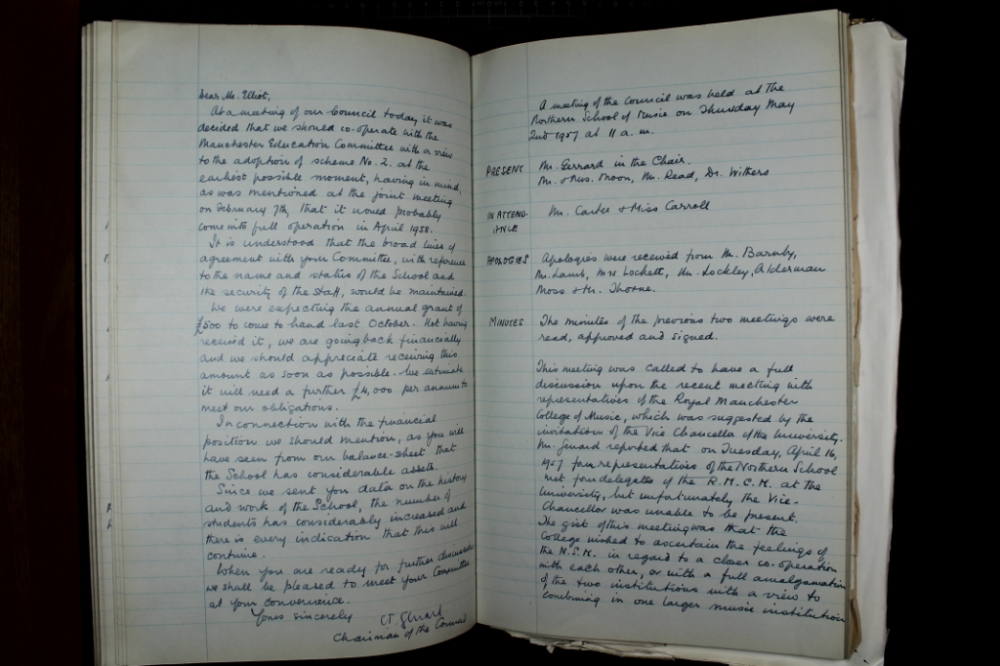 Dear Mr. Elliot,
At a meeting of our Council today it was
decided that we should co-operate with the
Manchester Education Committee with a view
to the adoption of scheme No. 2. at the
earliest possible moment, having in mind,
as was mentioned at the joint meeting
on February 7th, that it would probably
come into full operation in April 1958.
It is understood that the broad lines of
agreement with your Committee, with reference
to the name and status of the School and
the security of the staff, would be maintained.
We were expecting the annual grant of
£500 to come to hand last October. Not having
received it, we are going back financially
and we should appreciate receiving this
amount as soon as possible. We estimate
it will need a further £4,000 per annum to
meet our obligations.
In connection with the financial
position we should mention, as you will
have seen from our balance-sheet that
the School has considerable assets.
Since we sent you data on the history
and work of the School, the number of
students has considerably increased and
there is every indication that this will
continue.
When you are ready for further discussion
we shall be pleased to meet your Committee
at your convenience.
Yours sincerely
Chairman of the Council
A meeting of the Council was held at the
Northern School of Music on Thursday May
2nd 1957 at 11 a.m.
PRESENT Mr. Gerrard in the Chair.
Mr. & Mrs. Moon, Mr. Read, Dr. Withers
IN ATTEND-
ANCE Mr. Carter & Miss Carroll
APOLOGIES Apologies were received from Mr. Barnby,
Mr. Lamb, Mrs Lockett, Mr. Lockley, Alderman
Moss & Mr. Thorne.
MINUTES The minutes of the previous two meetings were
read, approved and signed.
This meeting was called to have a full
discussion upon the recent meeting with
representatives of the Royal Manchester
College of Music, which was suggested by the
invitation of the Vice Chancellor of the University.
Mr. Gerrard reported that on Tuesday, April 16,
1957 four representatives of the Northern School
met four delegates of the R.M.C.M. at the
University, but unfortunately the Vice-
Chancellor was unable to be present.
The gist of this meeting was that the
College wished to ascertain the feelings of
the N.S.M. in regard to a closer co-operation
with each other, or with a full amalgamation
of the two institutions with a view to
combining in one larger music institution